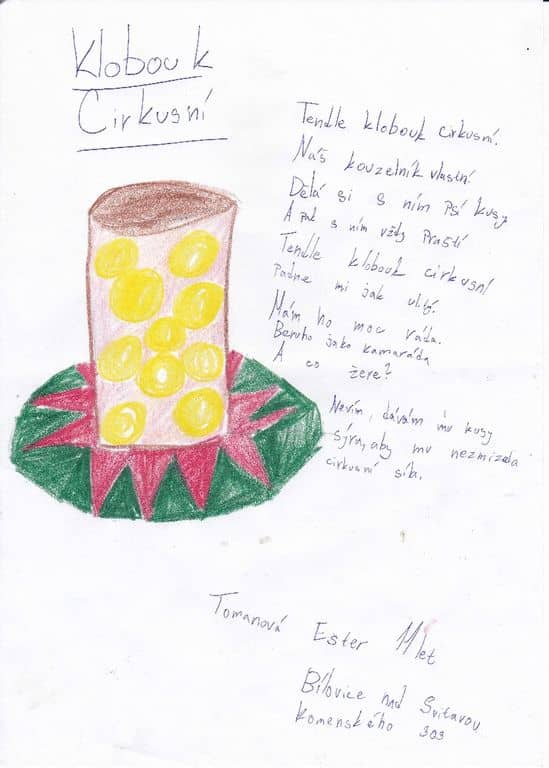 Klobouk
Cirkusní
Tendle klobouk cirkusní.
Náš kouzelník vlastní.
Dělá si s ním psí kusy
A pak s ním vždy praští
Tendle klobouk cirkusní
padne mi jak ulitý.
Mám ho moc ráda.
Beruho jako kamaráda
A co žere?
Nevím, dávám mu kusy
sýra, aby mu nezmizela
cirkusní síla.
Tomanová Ester 11 let
Bílovice nad Svitavou
Komenského 303